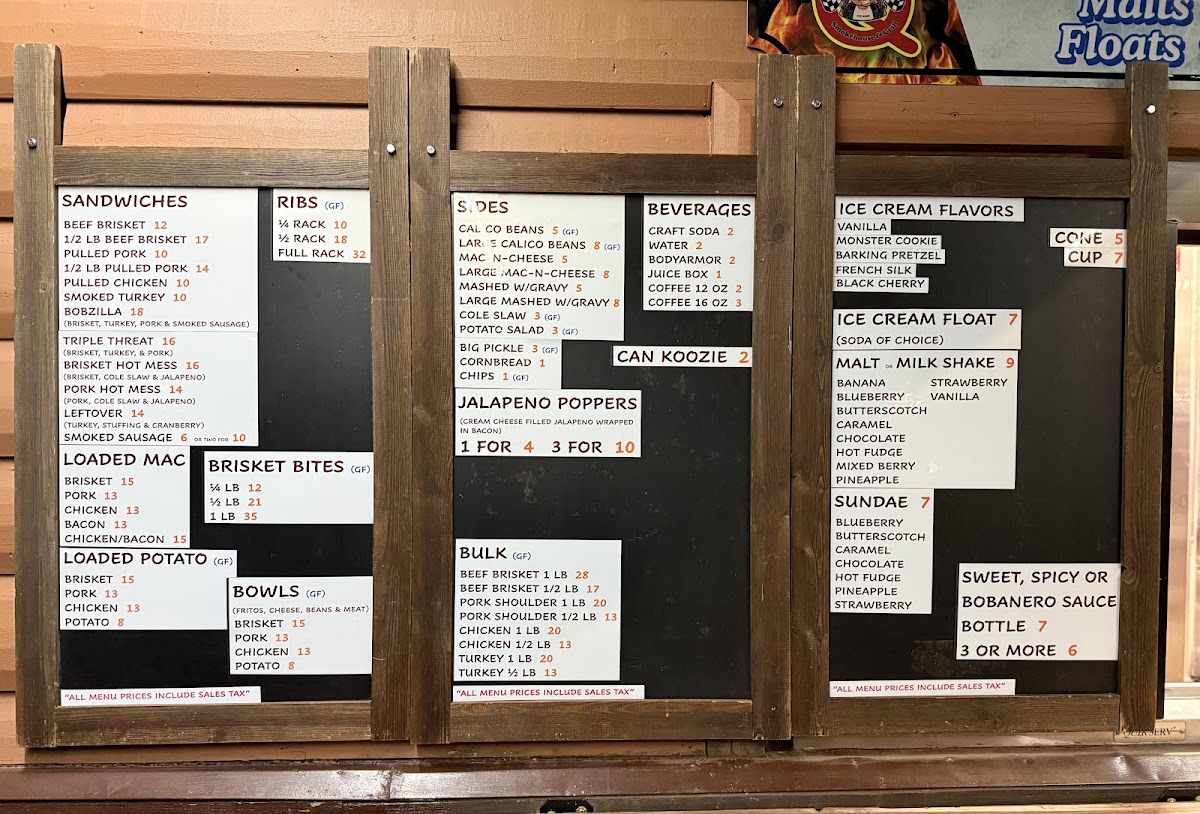 Smokehouse & Grill
Malts
Floats
SANDWICHES
BEEF BRISKET 12
1/2 LB BEEF BRISKET 17
PULLED PORK 10
1/2 LB PULLED PORK 14
PULLED CHICKEN 10
SMOKED TURKEY 10
BOBZILLA 18
(BRISKET, TURKEY, PORK & SMOKED SAUSAGE)
TRIPLE THREAT 16
(BRISKET, TURKEY, & PORK)
BRISKET HOT MESS 16
(BRISKET, COLE SLAW & JALAPENO)
PORK HOT MESS 14
(PORK, COLE SLAW & JALAPENO)
LEFTOVER 14
(TURKEY, STUFFING & CRANBERRY)
SMOKED SAUSAGE 6 OR TWO FOR 10
RIBS (GF)
¼ RACK 10
½ RACK 18
FULL RACK 32
LOADED MAC
BRISKET 15
PORK 13
CHICKEN 13
BACON 13
CHICKEN/BACON 15
BRISKET BITES (GF)
¼ LB 12
½ LB 21
1 LB 35
LOADED POTATO (GF)
BRISKET 15
PORK 13
CHICKEN 13
POTATO 8
BOWLS (GF)
(FRITOS, CHEESE, BEANS & MEAT)
BRISKET 15
PORK 13
CHICKEN 13
POTATO 8
"ALL MENU PRICES INCLUDE SALES TAX"
SIDES
CALICO BEANS 5 (GF)
LARGE CALICO BEANS 8 (GF)
MAC-N-CHEESE 5
LARGE MAC-N-CHEESE 8
MASHED W/GRAVY 5
LARGE MASHED W/GRAVY 8
COLE SLAW 3 (GF)
POTATO SALAD 3 (GF)
BIG PICKLE 3 (GF)
CORNBREAD 1
CHIPS 1 (GF)
BEVERAGES
CRAFT SODA 2
WATER 2
BODYARMOR 2
JUICE BOX 1
COFFEE 12 OZ 2
COFFEE 16 OZ 3
CAN KOOZIE 2
JALAPENO POPPERS
(CREAM CHEESE FILLED JALAPENO WRAPPED
IN BACON)
1 FOR 4 3 FOR 10
BULK (GF)
BEEF BRISKET 1 LB 28
BEEF BRISKET 1/2 LB 17
PORK SHOULDER 1 LB 20
PORK SHOULDER 1/2 LB 13
CHICKEN 1 LB 20
CHICKEN 1/2 LB 13
TURKEY 1 LB 20
TURKEY ½ LB 13
"ALL MENU PRICES INCLUDE SALES TAX"
ICE CREAM FLAVORS
VANILLA
MONSTER COOKIE
BARKING PRETZEL
FRENCH SILK
BLACK CHERRY
CONE 5
CUP 7
ICE CREAM FLOAT 7
(SODA OF CHOICE)
MALT OR MILK SHAKE 9
BANANA STRAWBERRY
BLUEBERRY VANILLA
BUTTERSCOTCH
CARAMEL
CHOCOLATE
HOT FUDGE
MIXED BERRY
PINEAPPLE
SUNDAE 7
BLUEBERRY
BUTTERSCOTCH
CARAMEL
CHOCOLATE
HOT FUDGE
PINEAPPLE
STRAWBERRY
SWEET, SPICY OR
BOBANERO SAUCE
BOTTLE 7
3 OR MORE 6
"ALL MENU PRICES INCLUDE SALES TAX"
QUIKSERV